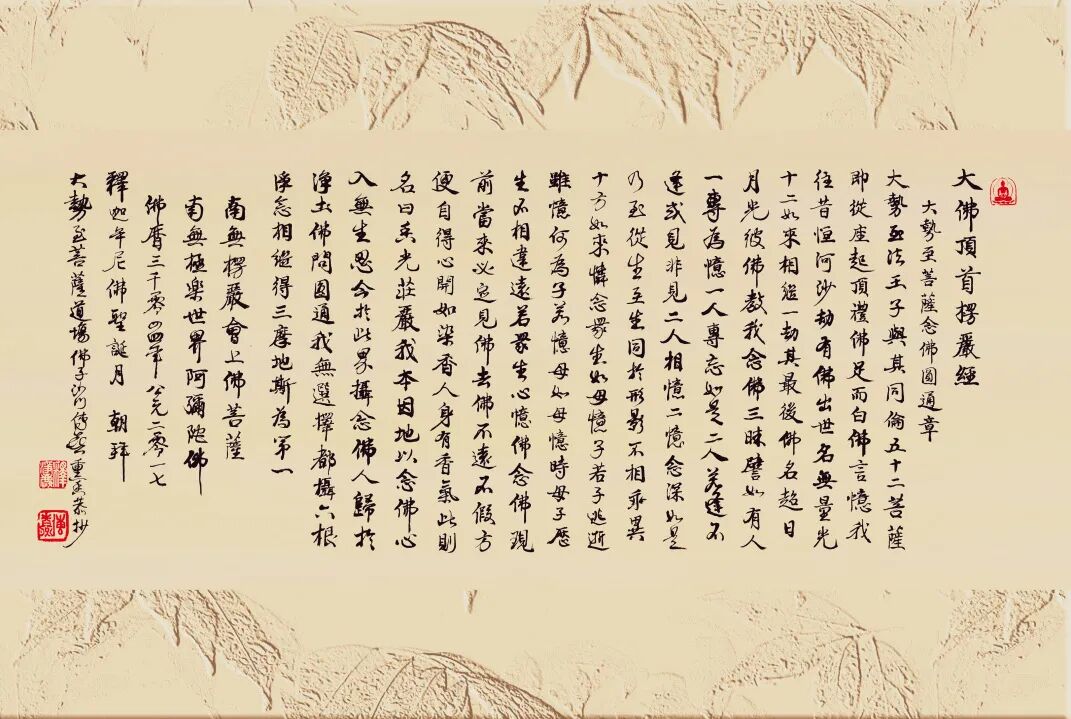 大佛頂首楞嚴經
大勢至菩薩念佛圓通章
大勢至法王子與其同倫五十二菩薩
即從座起頂禮佛足而白佛言憶我
往昔恒河沙劫有佛出世名無量光
十二如來相繼一劫其最後佛名超日
月光彼佛教我念佛三昧譬如有人
一專為憶一人專忘如是二人若逢不
逢或見非見二人相憶二憶念深如是
乃至從生至生同於形影不相乖異
十方如來憐念眾生如母憶子若子逃逝
雖憶何為子若憶母如母憶時母子歷
生不相違遠若眾生心憶佛念佛現
前當來必定見佛去佛不遠不假方
便自得心開如染香人身有香氣此則
名曰香光莊嚴我本因地以念佛心
入無生忍今於此界攝念佛人歸於
淨土佛問圓通我無選擇都攝六根
淨念相繼得三摩地斯為第一
南無楞嚴會上佛菩薩
南無極樂世界阿彌陀佛
佛曆三千零四四年 公元二零一七
釋迦牟尼佛聖誕月 朝拜
大勢至菩薩道場佛子沙门傳喜恭抄